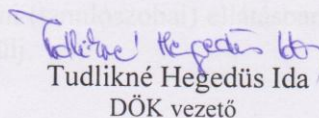 Tudlikné Hegedüs Ida
Tudlikné Hegedüs Ida
DÖK vezető